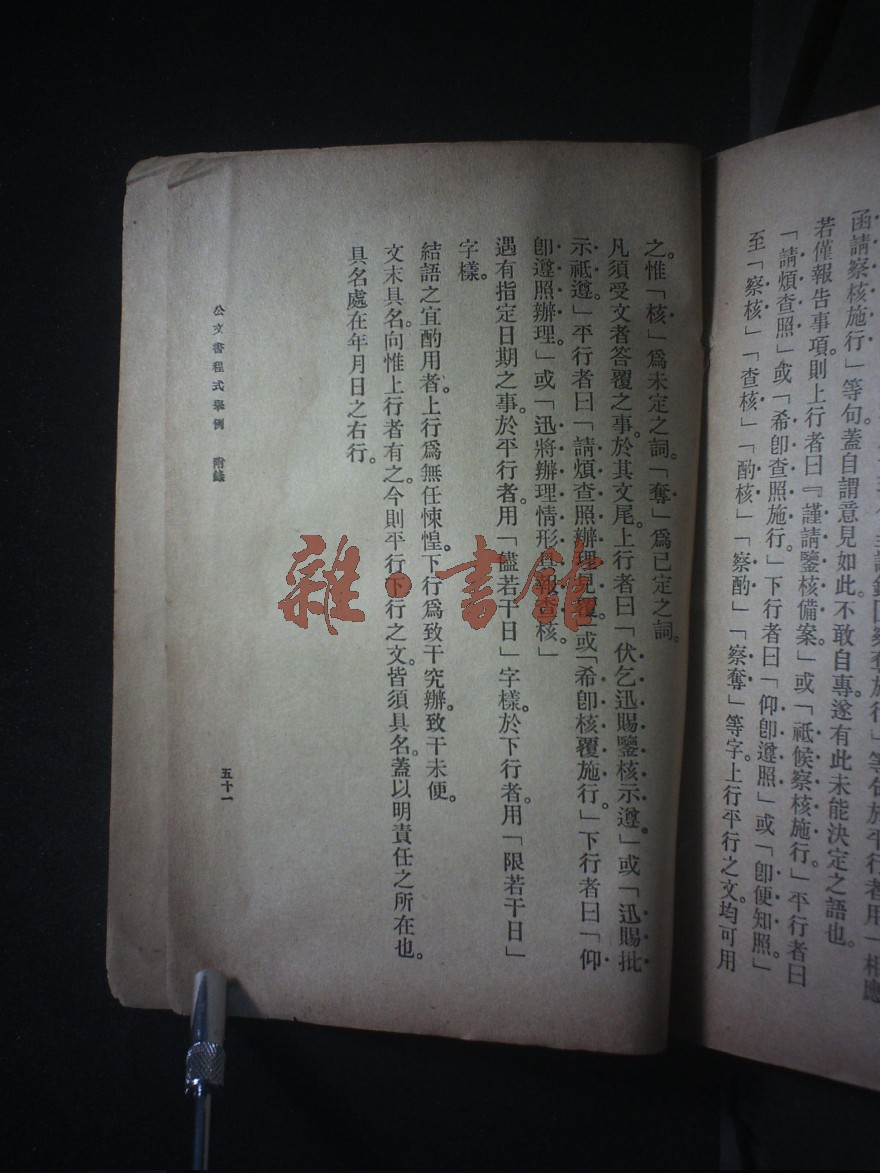 函請察核施行」等句。蓋自謂意見如此。不敢自專。遂有此未能決定之語也。
若僅報告事項。則上行者曰『謹請鑒核備案」或「祗候察核施行。」平行者曰
「請煩查照」或「希卽查照施行。」下行者曰「仰卽遵照」或「卽便知照。」
至「察核」「查核」「酌核」「察酌」「察奪」等字。上行平行之文。均可用
之。惟「核」爲未定之詞。「奪」爲已定之詞。
凡須受文者答覆之事。於其文尾。上行者曰「伏乞迅賜鑒核示遵」或「迅賜批
示祗遵。」平行者曰「請煩查照辦理見覆」或「希卽核覆施行。」下行者曰「仰
卽遵照辦理。」或「迅將辦理情形具報查核。」
遇有指定日期之事。於平行者。用「儘若干日」字樣。於下行者。用「限若干日」
字樣。
結語之宜酌用者。上行爲無任悚惶。下行爲致干究辦。致干未便。
文末具名。向惟上行者有之。今則平行下行之文。皆須具名。蓋以明責任之所在也。
具名處在年月日之右行。
公文書程式舉例 附錄
五十一
雜·書館